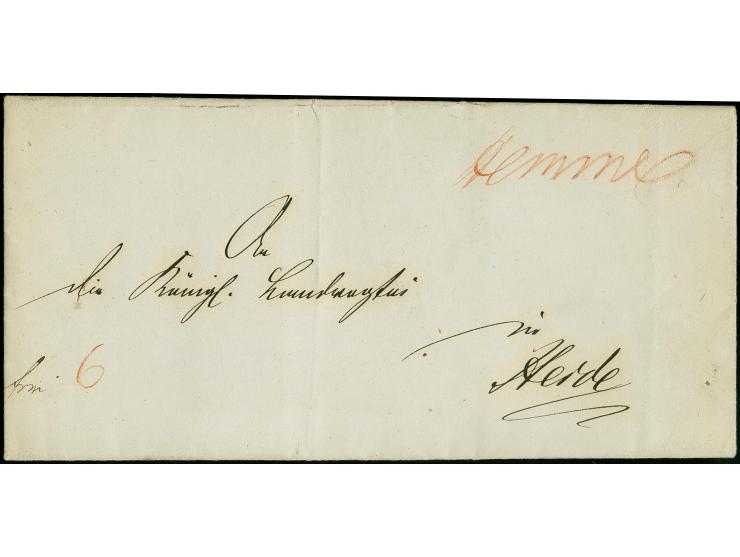 Hemme
An
die Königl. Landvogtei
in
Heide
frei 6